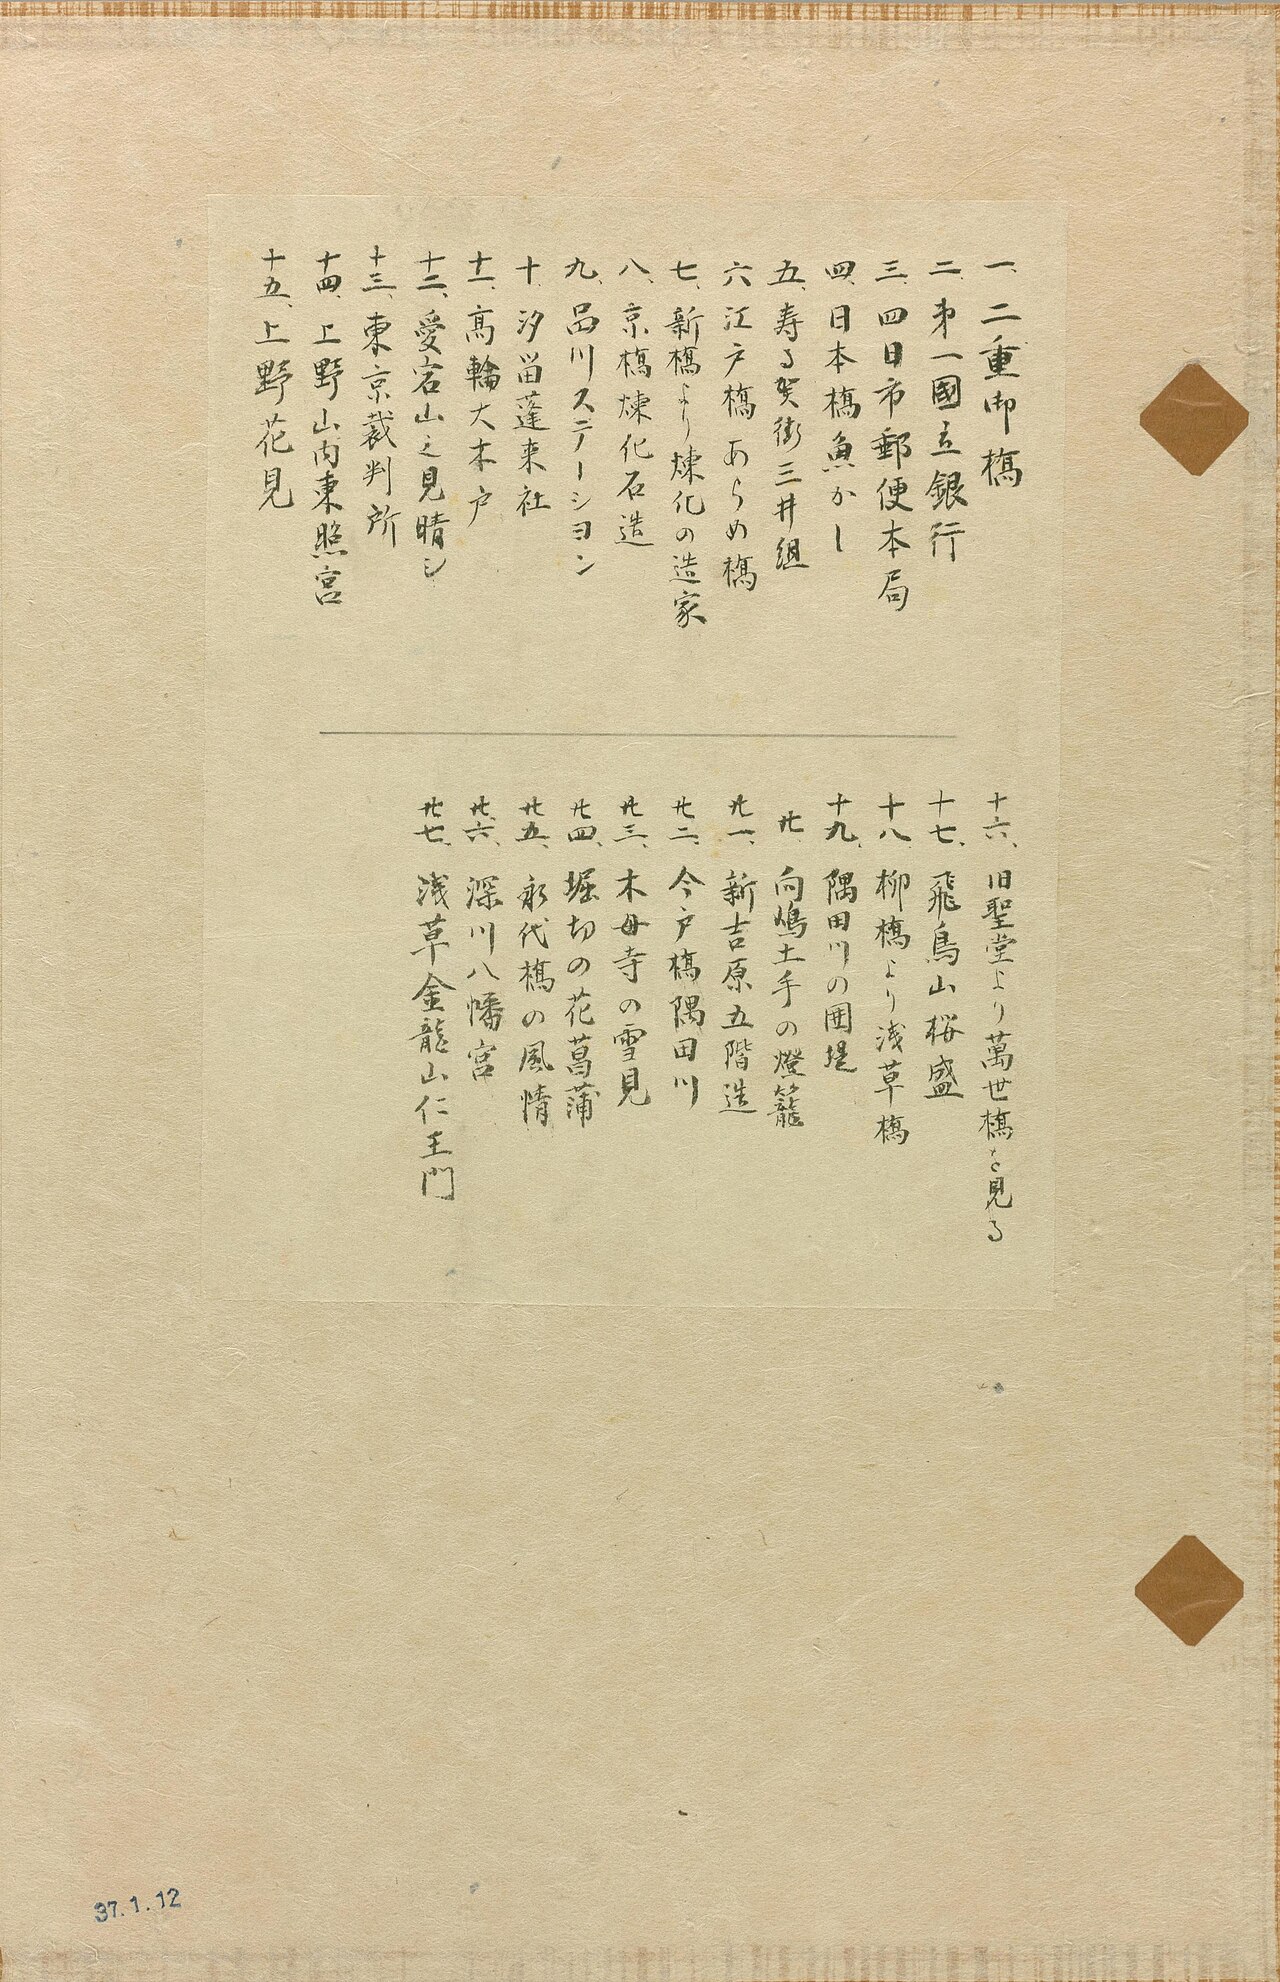 一、二重御橋
二、第一國立銀行
三、四日市郵便本局
四、日本橋魚かし
五、寿る賀街三井組
六、江戸橋あらめ橋
七、新橋より煉化の造家
八、京橋煉化石造
九、品川ステーシヨン
十、汐留蓬来社
十一、高輪大木戸
十二、愛宕山之見晴シ
十三、東京裁判所
十四、上野山内東照宮
十五、上野花見
十六、旧聖堂より萬世橋を見る
十七、飛鳥山桜盛
十八、柳橋より浅草橋
十九、隅田川の囲堤
廿、向嶋土手の燈籠
廿一、新吉原五階造
廿二、今戸橋隅田川
廿三、木母寺の雪見
廿四、堀切の花菖蒲
廿五、永代橋の風情
廿六、深川八幡宮
廿七、浅草金龍山仁王門
37.1.12